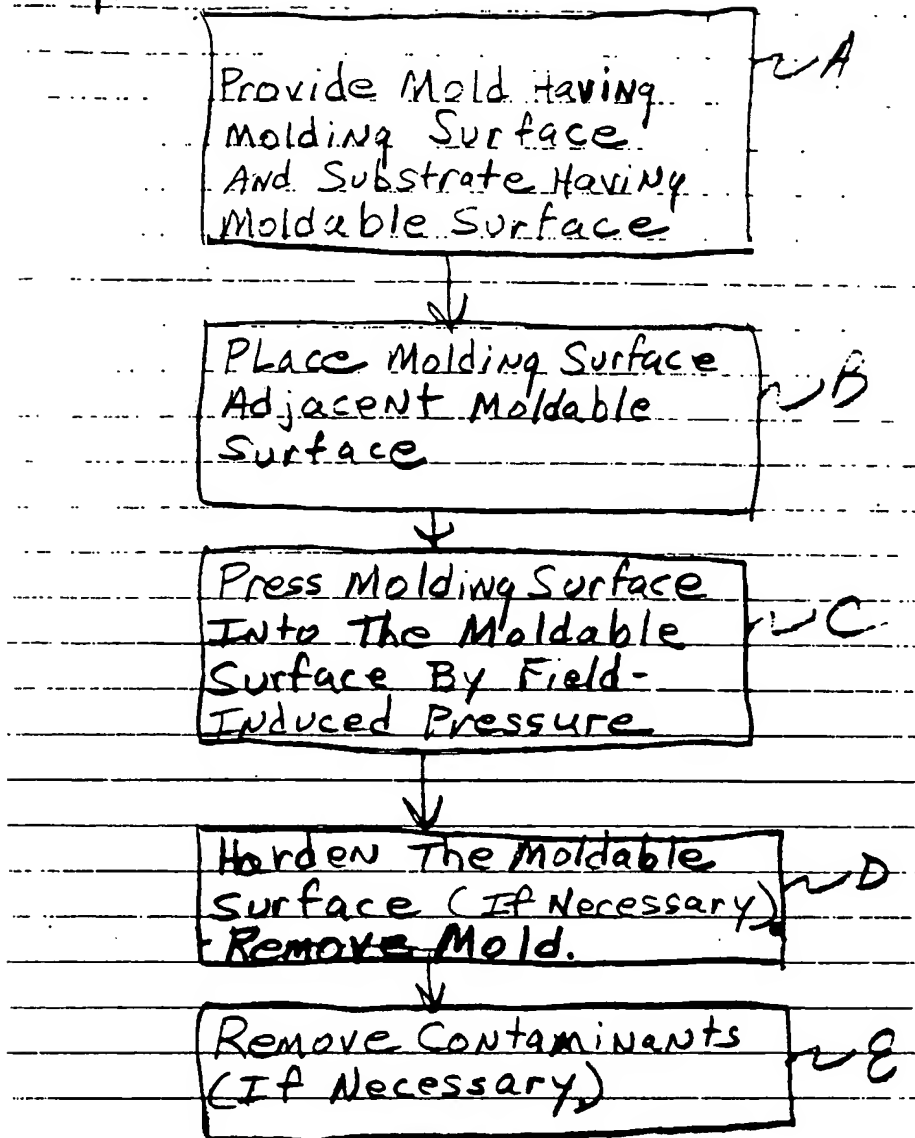 Provide Mold Having
Molding Surface
And Substrate Having
Moldable Surface
A
Place Molding Surface
Adjacent Moldable
Surface
B
Press Molding Surface
Into The Moldable
Surface By Field-
Induced Pressure
C
Harden The Moldable
Surface (If Necessary).
-Remove Mold.
D
Remove Contaminants
(If Necessary)
E